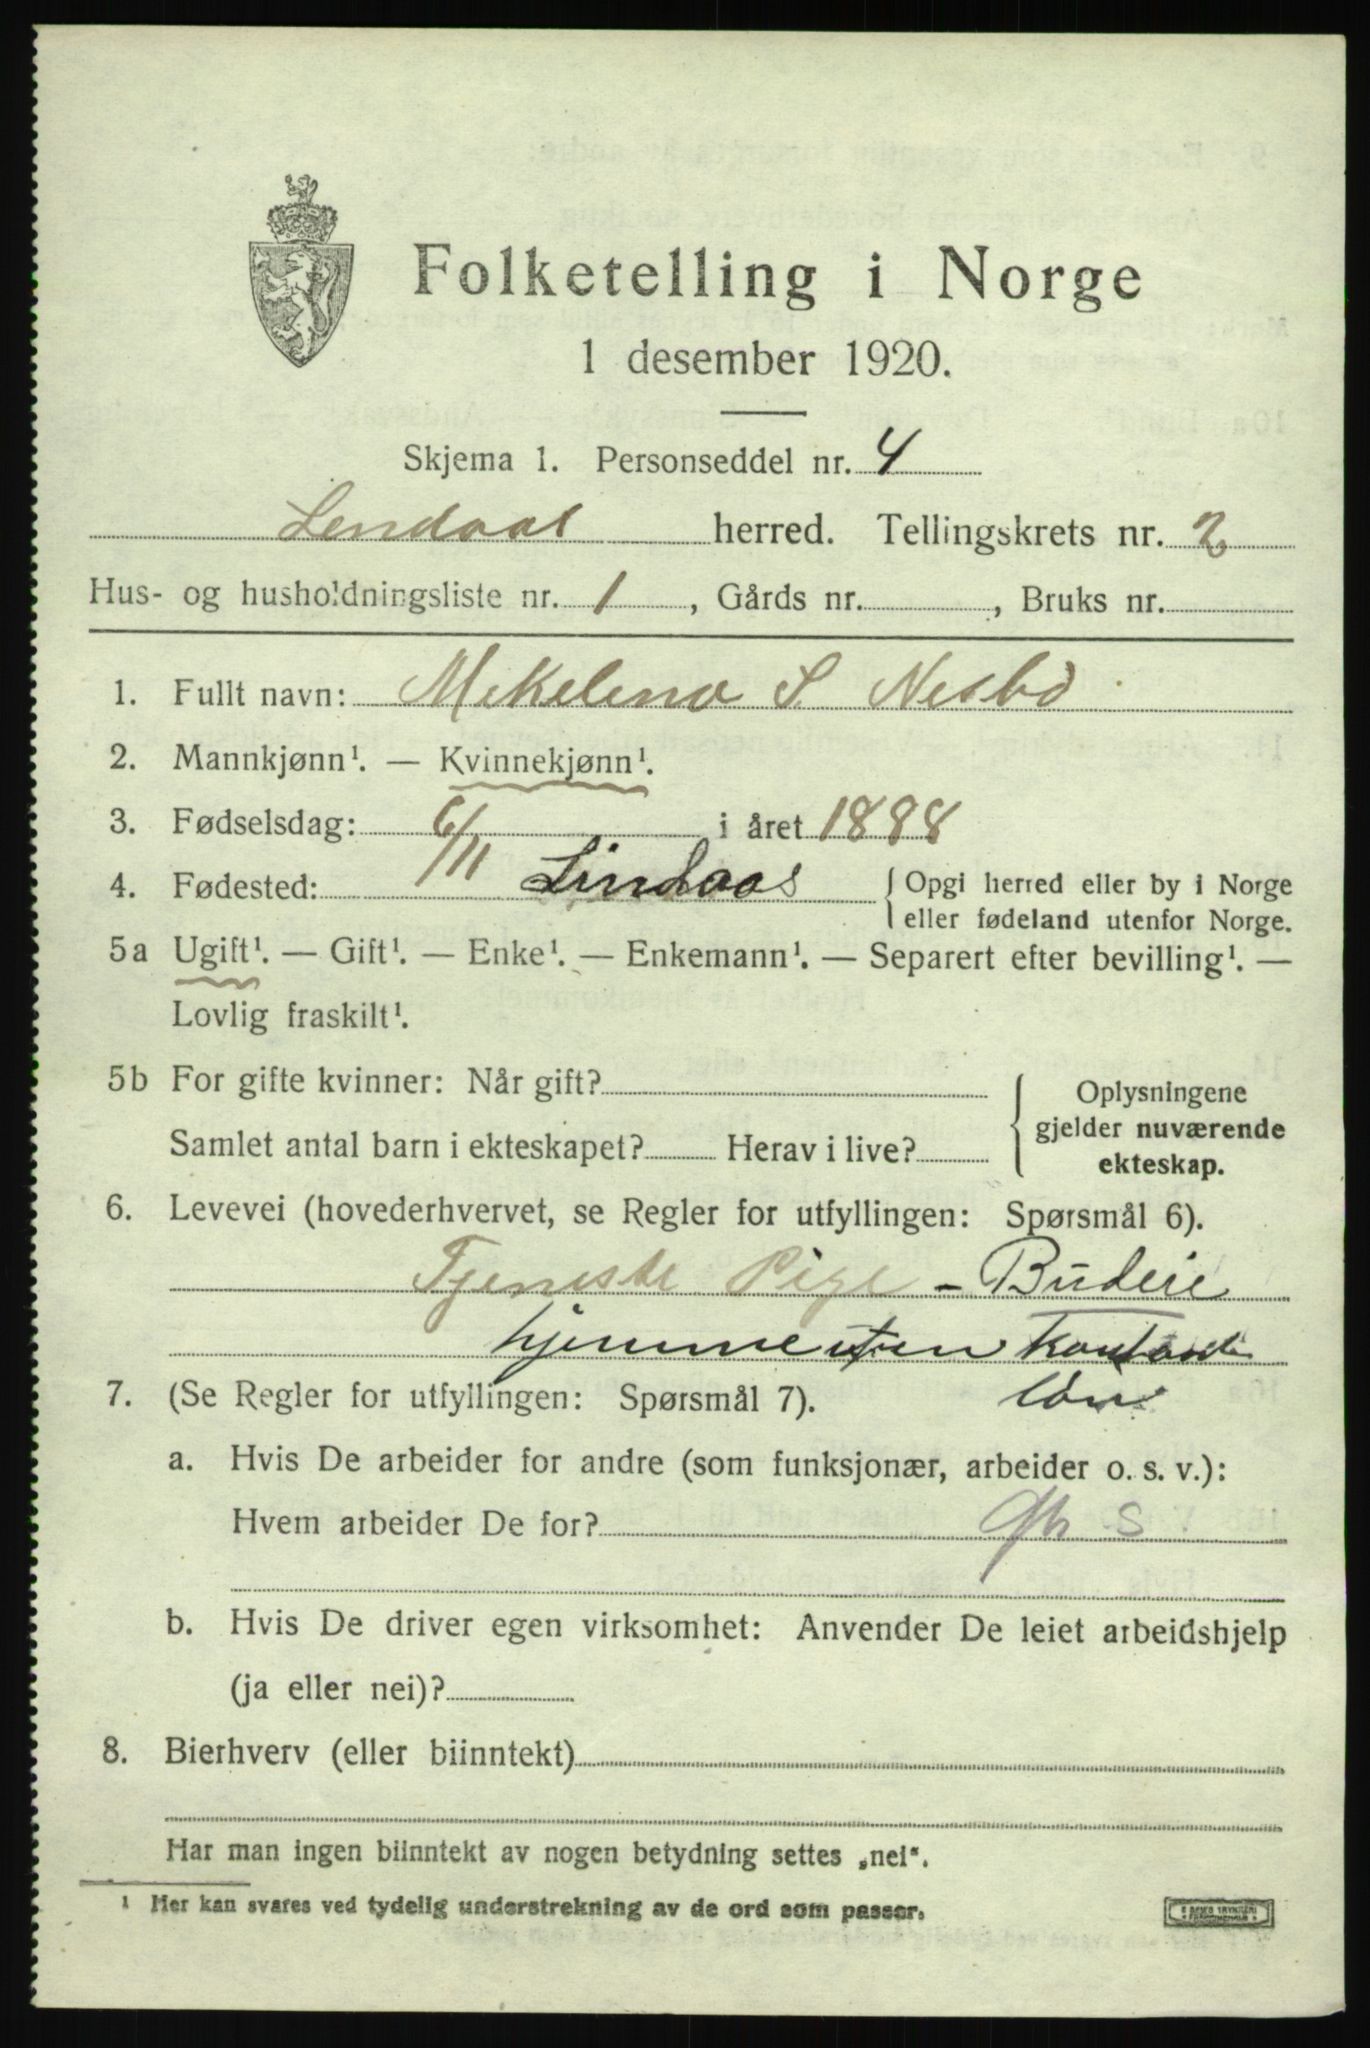 Folketelling i Norge
1 desember 1920.
Skjema 1. Personseddel nr. 4
Lendaas herred. Tellingskrets nr. 2
Hus- og husholdningsliste nr. 1, Gårds nr. , Bruks nr.
1. Fullt navn: Mekelena S. Nesbö
2. Mannkjønn¹. — Kvinnekjønn¹.
3. Fødselsdag: 6/11 i året 1898
4. Fødested: Lindaas { Opgi herred eller by i Norge
eller fødeland utenfor Norge.
5a Ugift¹. — Gift¹. — Enke¹. — Enkemann¹. — Separert efter bevilling¹. —
Lovlig fraskilt¹.
5b For gifte kvinner: Når gift?
Samlet antal barn i ekteskapet? Herav i live?
{ Oplysningene
gjelder nuværende
ekteskap.
6. Levevei (hovederhvervet, se Regler for utfyllingen: Spørsmål 6).
Tjeneste Pige - Budeie
hjemme uten kontand
lön
7. (Se Regler for utfyllingen: Spørsmål 7).
a. Hvis De arbeider for andre (som funksjonær, arbeider o. s. v.):
Hvem arbeider De for?
b. Hvis De driver egen virksomhet: Anvender De leiet arbeidshjelp
(ja eller nei)?
8. Bierhverv (eller biinntekt)
Har man ingen biinntekt av nogen betydning settes „nei“.
¹ Her kan svares ved tydelig understrekning av de ord som passer.